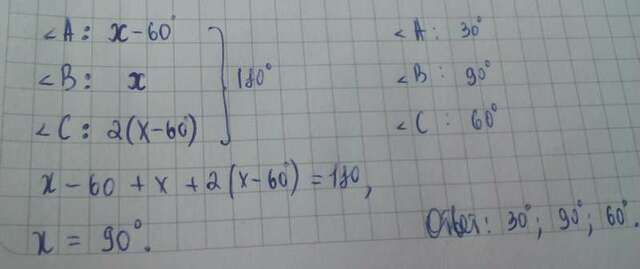 ∠A: x-60°
∠B: x
∠C: 2(x-60°)
180°
∠A: 30°
∠B: 90°
∠C: 60°
x-60+x+2(x-60°)=180,
x = 90°.
Ответ: 30°; 90°; 60°.